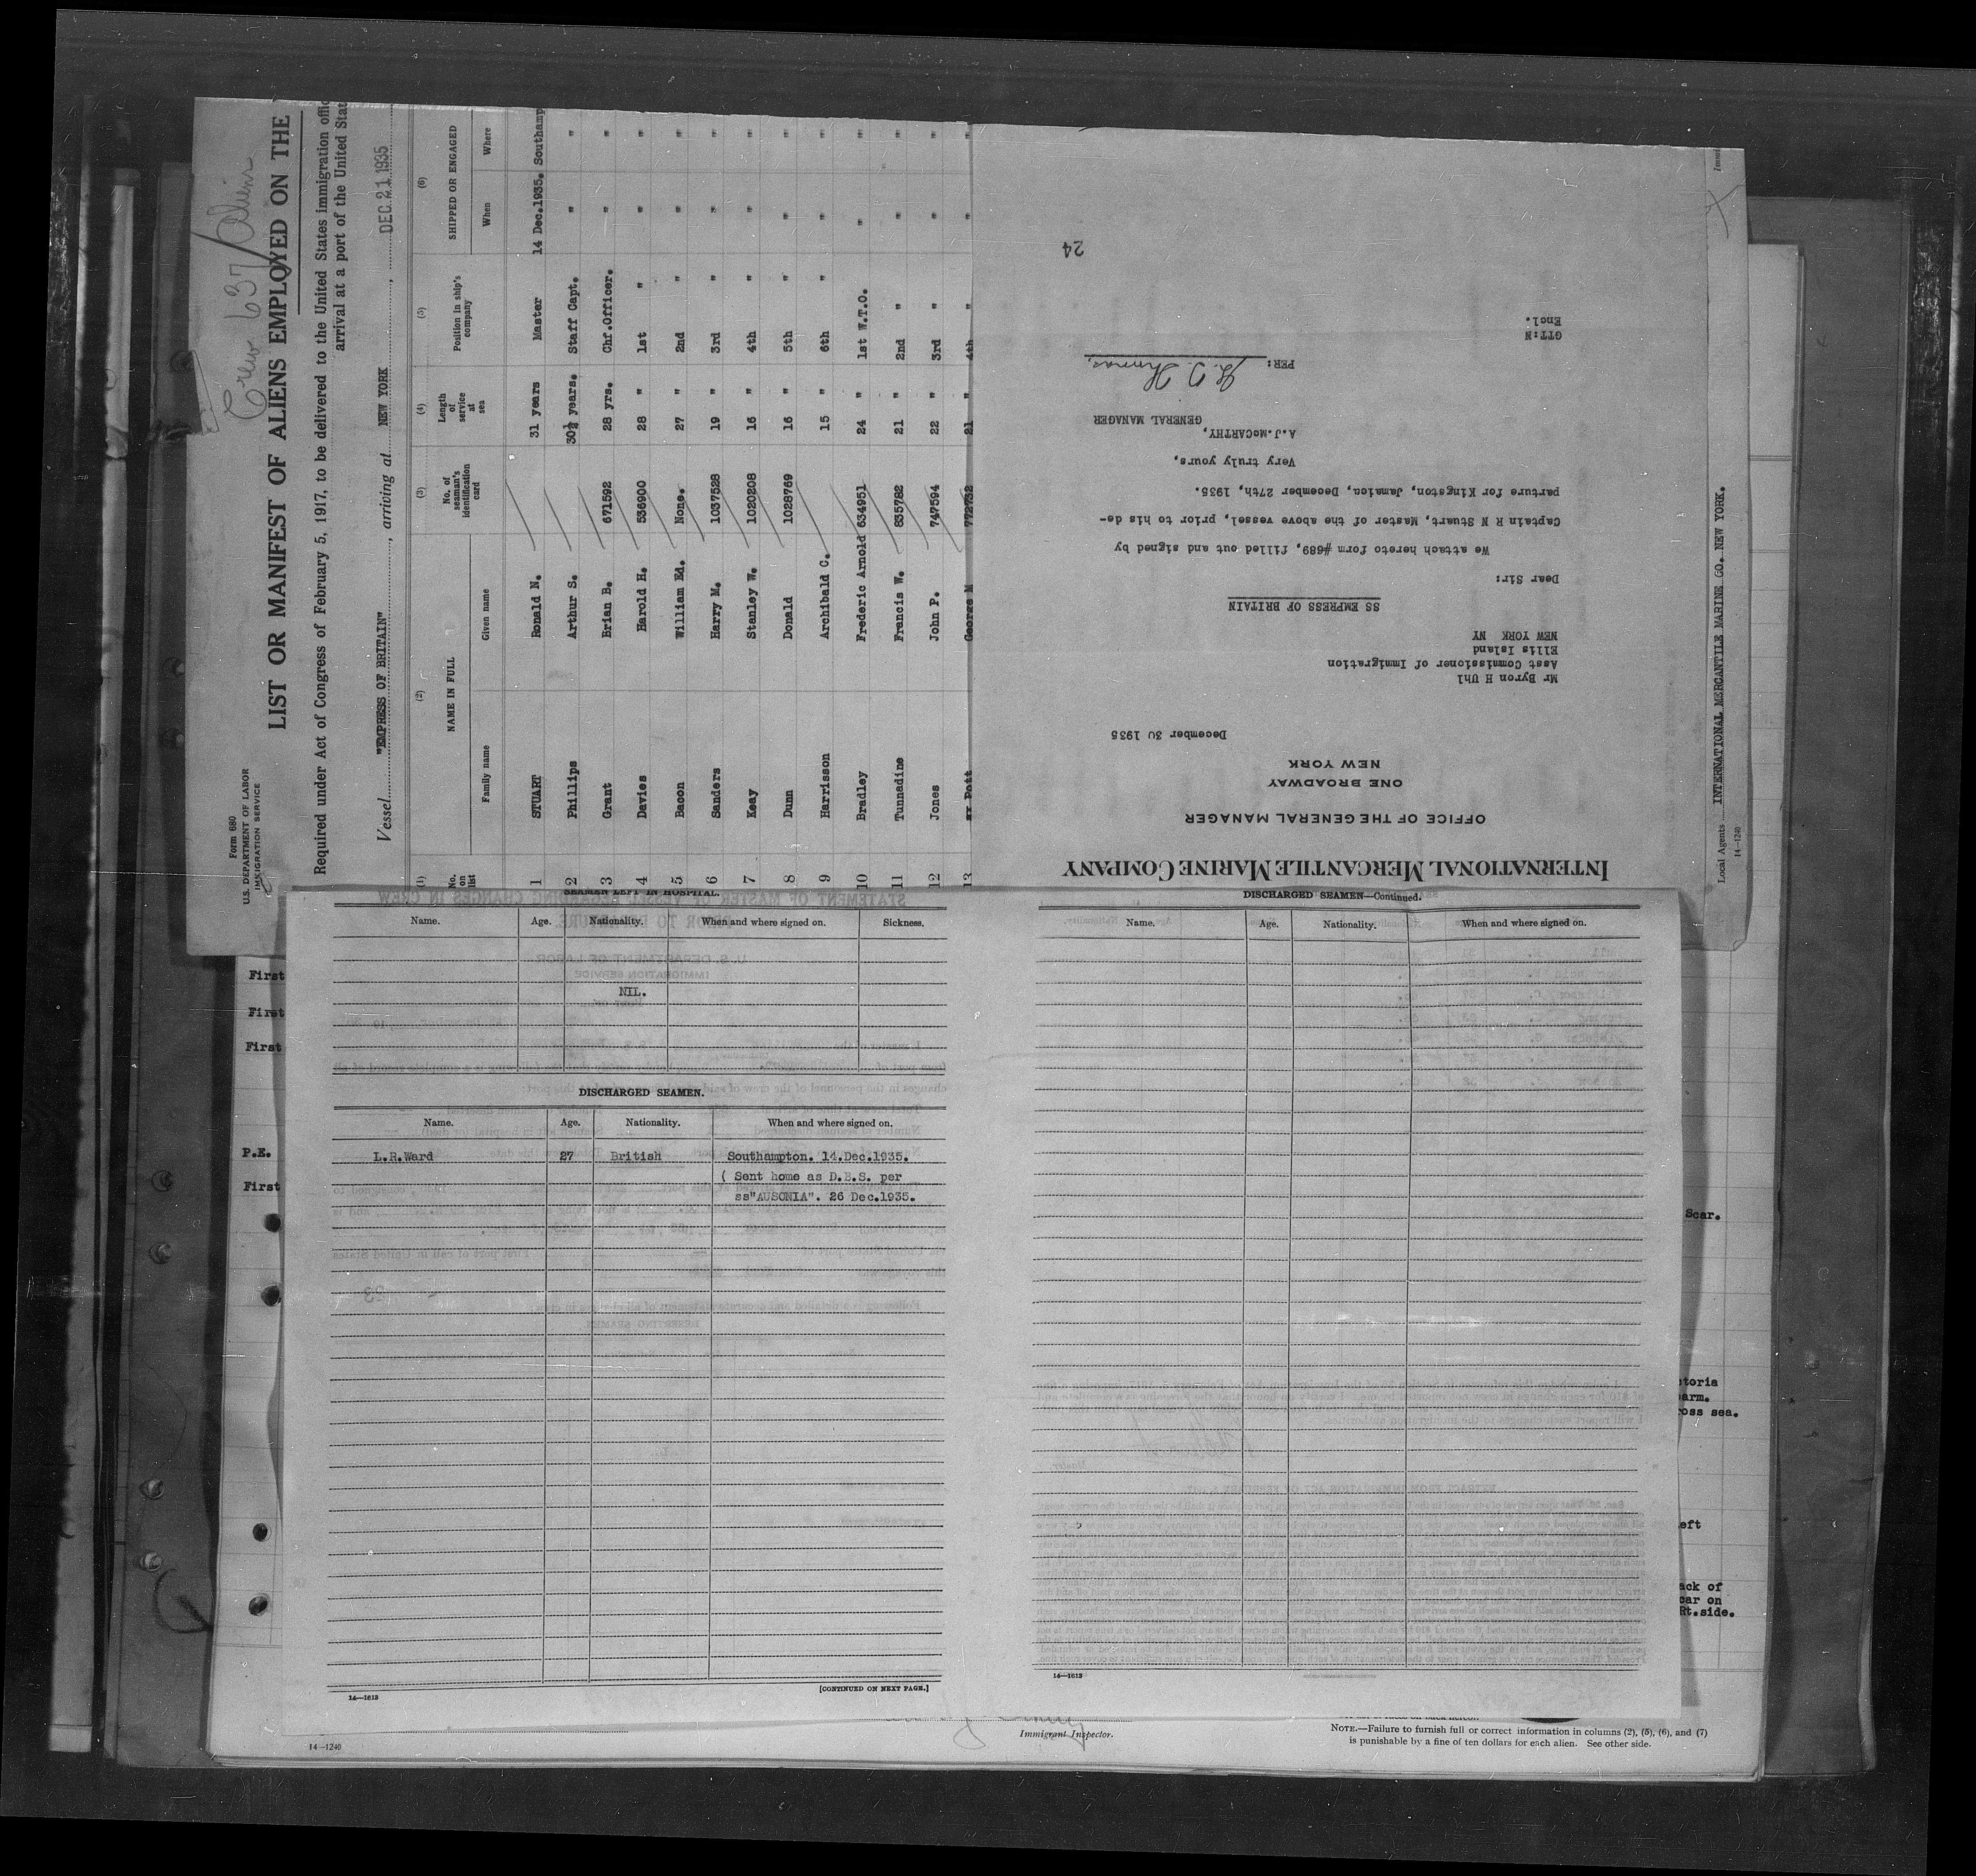 Form 680
U.S. DEPARTMENT OF LABOR
IMMIGRATION SERVICE
Crew 637 Aliens
LIST OR MANIFEST OF ALIENS EMPLOYED ON THE
Required under Act of Congress of February 5, 1917, to be delivered to the United States immigration
arrival at a port of the United
Vessel "EMPRESS OF BRITAIN", arriving at NEW YORK, DEC 21 1935
(1) (2) (3) (4) (5) (6)
No. on list NAME IN FULL No. of seaman's identification card Length of service at sea Position in ship's company SHIPPED OR ENGAGED
Family name Given name When Where
1 STUART Ronald N. 31 years Master 14 Dec.1935.
2 Phillips Arthur S. 30½ years. Staff Capt. " "
3 Grant Brian B. 671592 28 yrs. Chf.Officer. " "
4 Davies Harold H. 536900 28 " 1st " " "
5 Bacon William Ed. None. 27 " 2nd " " "
6 Sanders Harry M. 1037528 19 " 3rd " " "
7 Keay Stanley W. 1020208 16 " 4th " " "
8 Dunn Donald 1028769 16 " 5th " " "
9 Harrisson Archibald C. 15 " 6th " " "
10 Bradley Frederic Arnold 634951 24 " 1st W.T.O. " "
11 Tunnadine Francis W. 835782 21 " 2nd " " "
12 Jones John P. 747594 22 " 3rd " " "
13 George M 772732 21 " 4th " " "
INTERNATIONAL MERCANTILE MARINE COMPANY
OFFICE OF THE GENERAL MANAGER
ONE BROADWAY
NEW YORK
December 30 1935
Mr Byron H Uhl
Asst Commissioner of Immigration
Ellis Island
NEW YORK NY
SS EMPRESS OF BRITAIN
Dear Sir:
We attach hereto form #689, filled out and signed by
Captain R N Stuart, Master of the above vessel, prior to his de-
parture for Kingston, Jamaica, December 27th, 1935.
Very truly yours,
A.J.McCARTHY,
GENERAL MANAGER
PER:
GTT:N
Encl.
24
Local Agents INTERNATIONAL MERCANTILE MARINE CO. NEW YORK.
14-1240
SEAMEN LEFT IN HOSPITAL.
Name. Age. Nationality. When and where signed on. Sickness.
NIL.
DISCHARGED SEAMEN.
Name. Age. Nationality. When and where signed on.
L.R.Ward 27 British Southampton. 14.Dec.1935.
( Sent home as D.B.S. per
ss"AUSONIA". 26 Dec.1935.
[CONTINUED ON NEXT PAGE.]
14—1613
DISCHARGED SEAMEN—Continued.
Name. Age. Nationality. When and where signed on.
14—1613
First
First
First
P.E.
First
Scar.
arm.
sea.
Rt.side.
Immigrant Inspector.
NOTE.—Failure to furnish full or correct information in columns (2), (5), (6), and (7)
is punishable by a fine of ten dollars for each alien. See other side.
14—1240